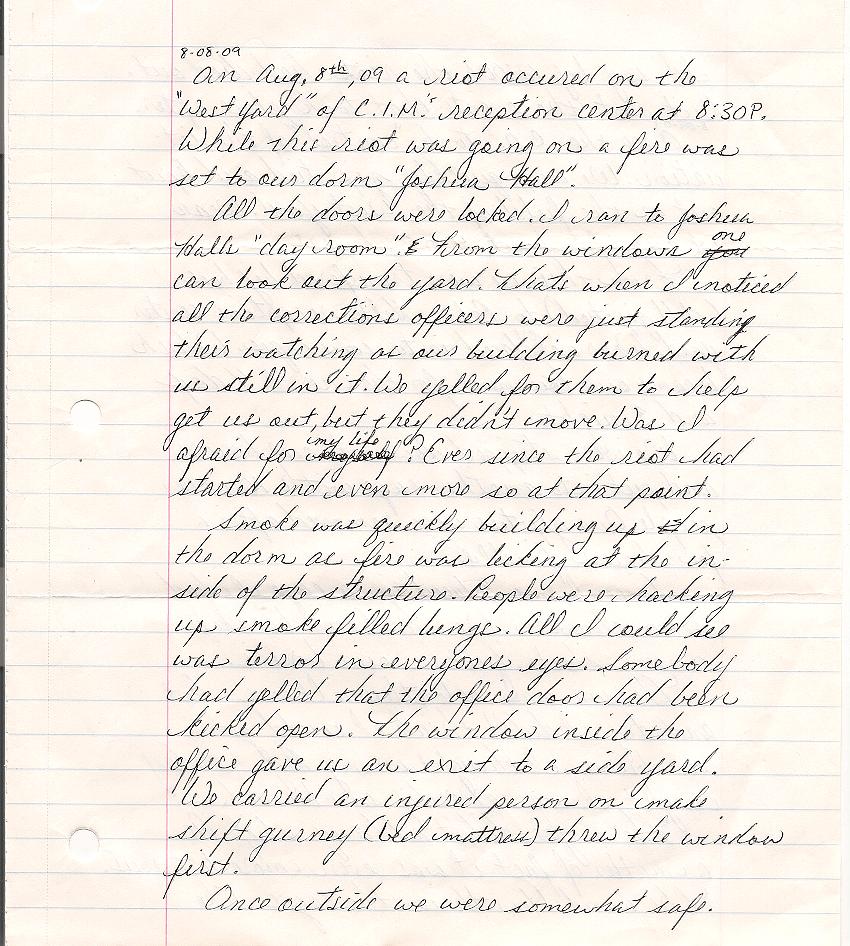 8-08-09
On Aug. 8th, 09 a riot occured on the
"West yard" of C.I.M.'s reception center at 8:30P.
While this riot was going on a fire was
set to our dorm "Joshua Hall".
All the doors were locked. I ran to Joshua
Halls "day room". & From the windows one
can look out the yard. That's when I noticed
all the corrections officers were just standing
their watching as our building burned with
us still in it. We yelled for them to help
get us out, but they didn't move. Was I
afraid for my life? Ever since the riot had
started and even more so at that point.
Smoke was quickly building up in
the dorm as fire was lecking at the in-
side of the structure. People were hacking
up smoke filled lungs. All I could see
was terror in everyones eyes. Somebody
had yelled that the office door had been
kicked open. The window inside the
office gave us an exit to a side yard.
We carried an injured person on make
shift gurney (bed mattress) threw the window
first.
Once outside we were somewhat safe.